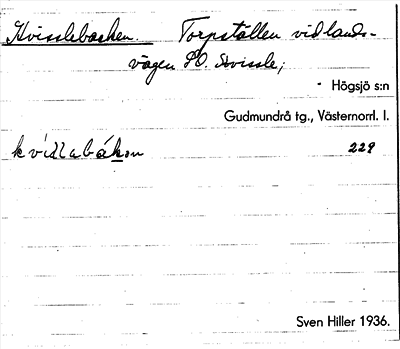 Kvisslebacken. Torpställen vid lands-
vägen SO. Kvissle;
Högsjö s:n
Gudmundrå tg., Västernorrl. l.
kvidlabákən 229
Sven Hiller 1936.